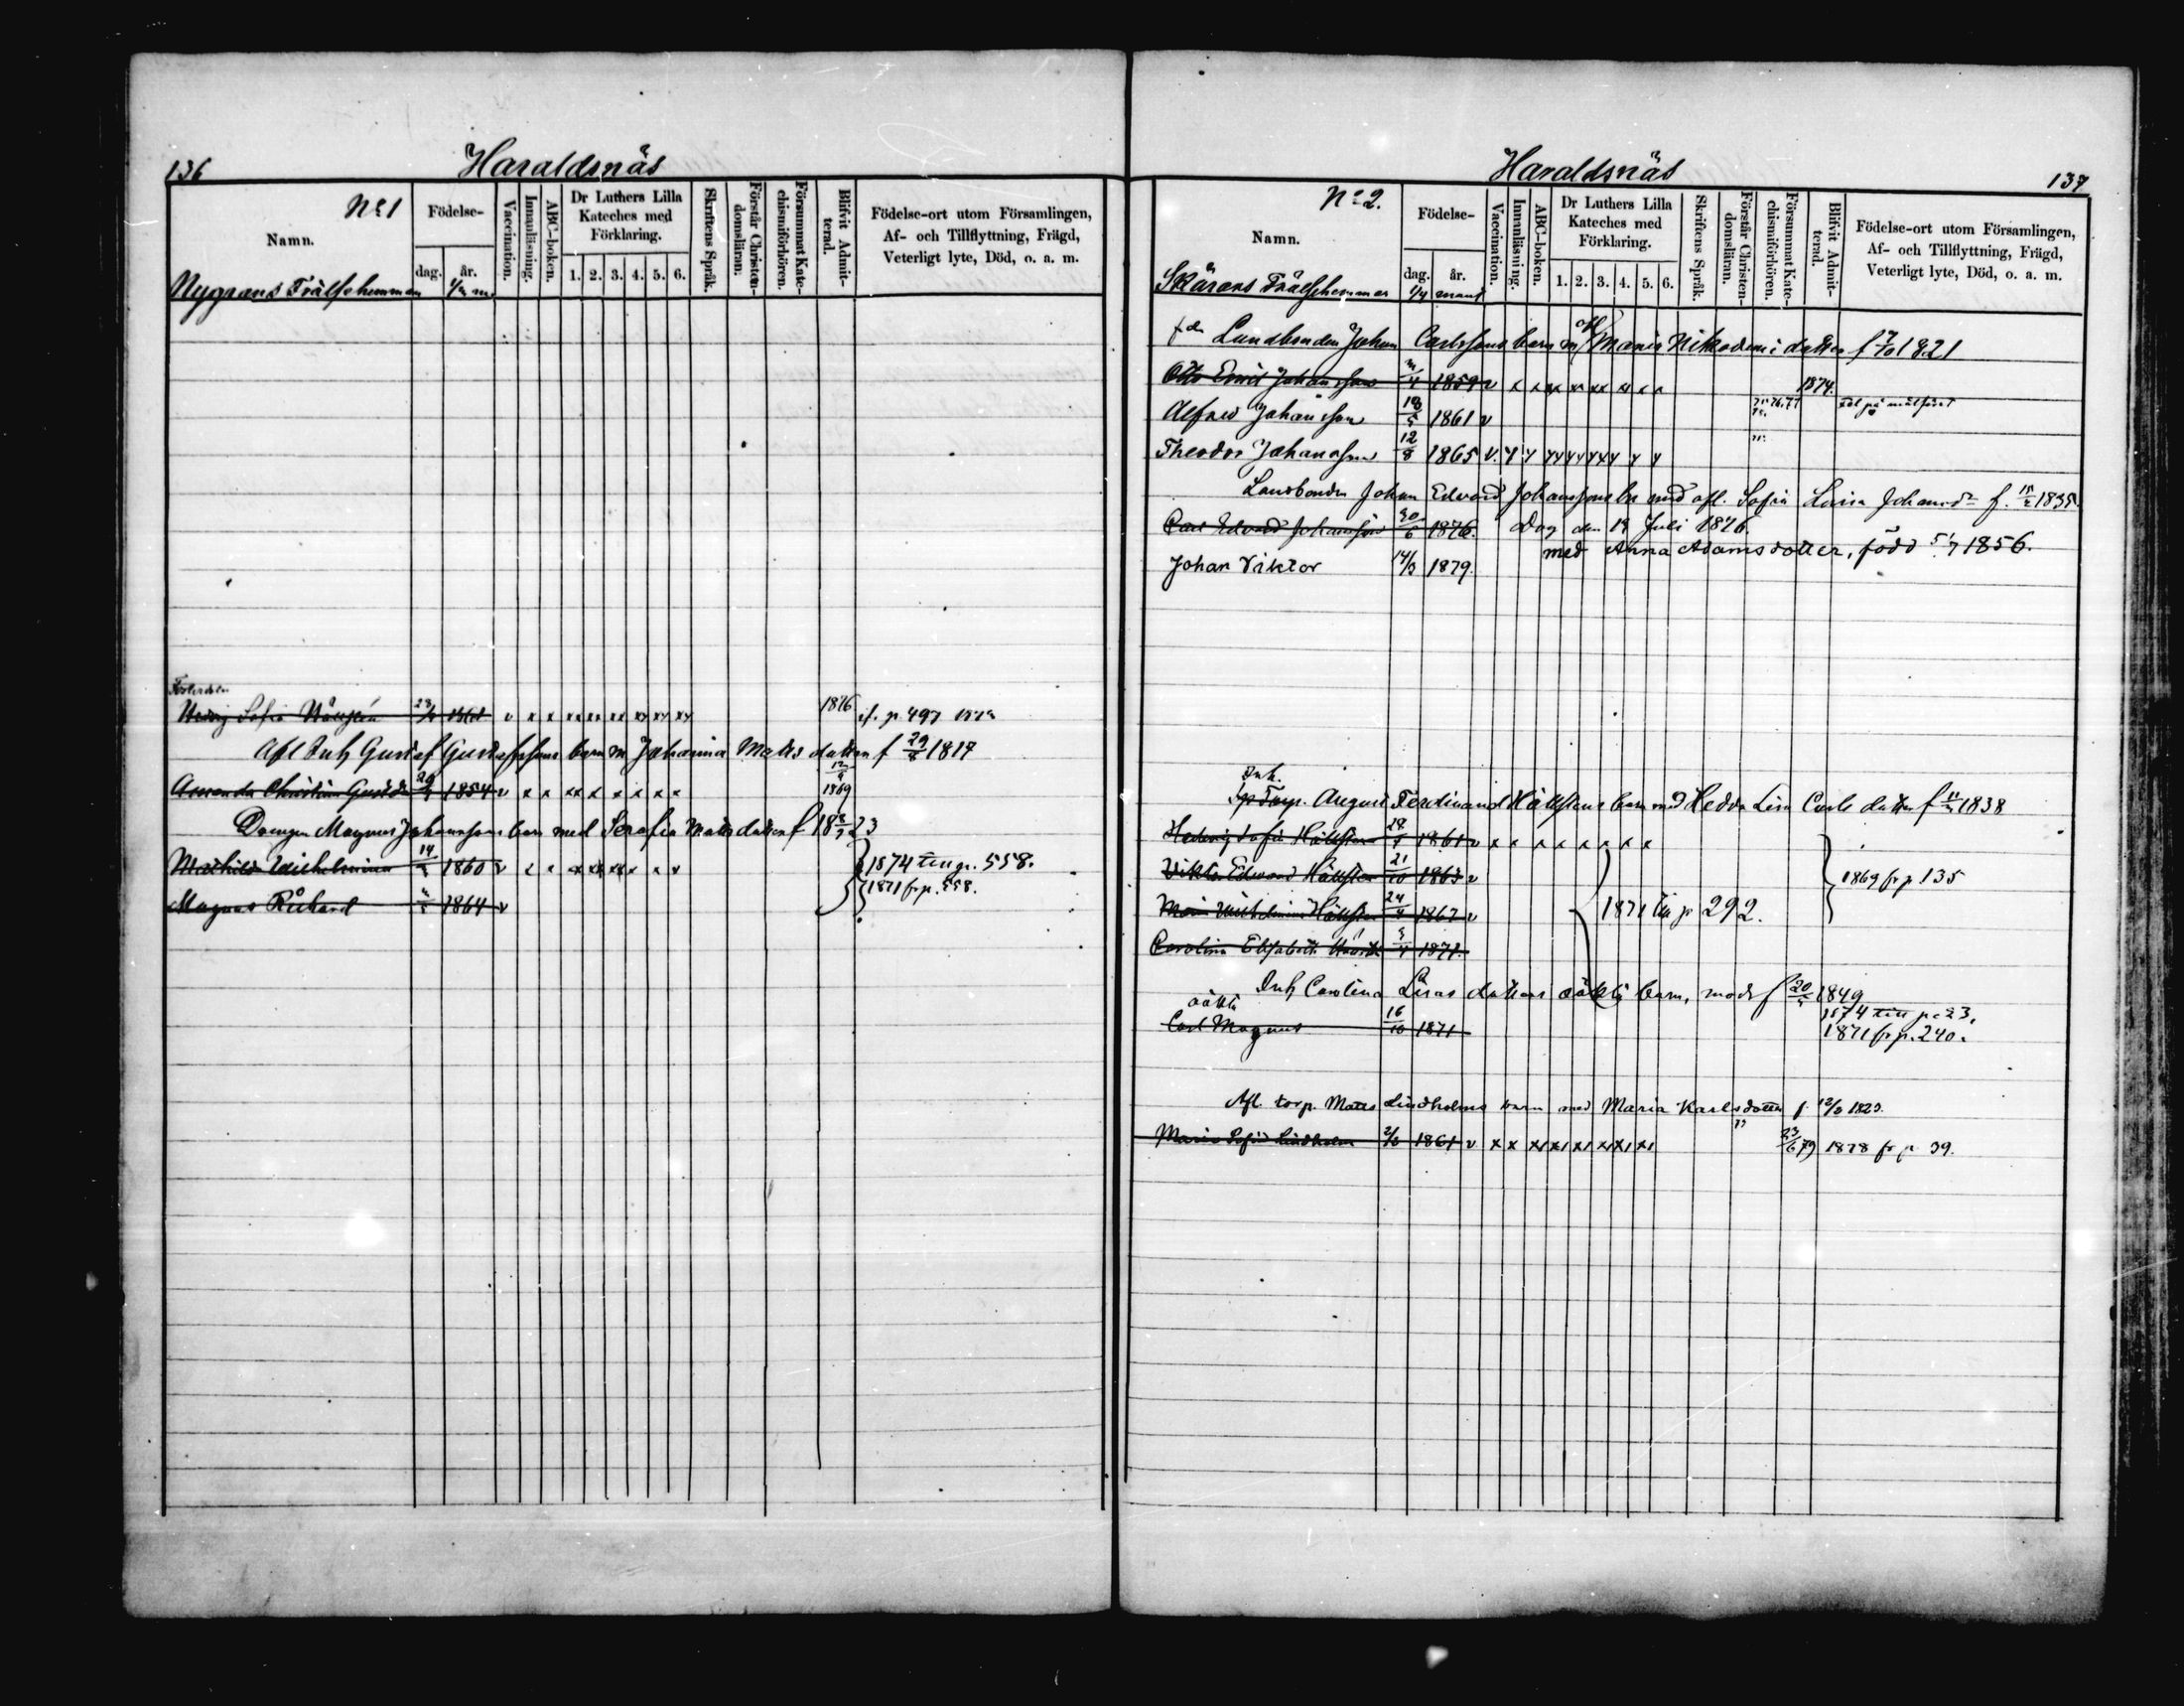 136 Haraldsnäs
No 1
Namn.
Födelse-
dag.
år.
Vaccination.
Innanläsning.
ABC-boken.
Dr Luthers Lilla
Kateches med
Förklaring.
1. 2. 3. 4. 5. 6.
Skriftens Språk.
Förstår Christen-
domsläran.
Försummat Kate-
chismiförhören.
Blifvit Admit-
terad.
Födelse-ort utom Församlingen,
Af- och Tillflyttning, Frägd,
Veterligt lyte, Död, o. a. m.
Nygrans Frälsehemman
Sofia 1876 p. 497
Afl Inh Gustaf Gustafssons barn m Johanna Mats dotter f 29/8 1817
Amanda Christina 1854 v x x xx x x x x x 1869
Drengen Magnus Johanssons barn med Serafia Mats dotter f 18 23
Mathilda Wilhelmina 14 1860 v 1874 till p. 558.
1871 fr p. 558.
Magnus Richard 1864 v
Haraldsnäs 137
No 2.
Namn.
Födelse-
dag.
år.
Vaccination.
Innanläsning.
ABC-boken.
Dr Luthers Lilla
Kateches med
Förklaring.
1. 2. 3. 4. 5. 6.
Skriftens Språk.
Förstår Christen-
domsläran.
Försummat Kate-
chismiförhören.
Blifvit Admit-
terad.
Födelse-ort utom Församlingen,
Af- och Tillflyttning, Frägd,
Veterligt lyte, Död, o. a. m.
Skärans Frälsehemman 1/4 mant
f.d. Landbonden Johan Carlssons barn m afl Maria Nikodemi dotter f 1821
Otto Emil Johansson 1859 v 1874.
Alfred Johansson 18/5 1861 v
Theodor Johansson 12/8 1865 v.
Landbonden Johan Edvard Johanssons bn med afl. Sofia Lovisa Johansdr f. 1835.
Carl Edvard Johansson 30/6 1876. Dog den 19 Juli 1876.
med Anna Adamsdotter, född 5/7 1856.
Johan Viktor 14/3 1879.
Inh.
Torp. August Ferdinand Hällstens barn med Hedda Lisa Carls dotter f 1838
Hedvig Sofia Hällsten 28 1861 v x x x x x x x x
Viktor Edward Hällsten 21/10 1863 v 1869 fr p 135
Maria Wilhelmina Hällsten 24/4 1867 v 1871 till p 292.
Carolina Elisabeth 1871.
Inh Carolina Lisas dotters oäkta barn, modr f 20 1849
oäkta
Carl Magnus 16/10 1871 1874 till p. 23.
1871 fr p. 240.
Afl. torp. Mats Lindholms barn med Maria Karlsdotter f. 12/2 1823.
Maria Sofia Lindholm 2/6 1861 v 23/6 79 1878 fr p 39.